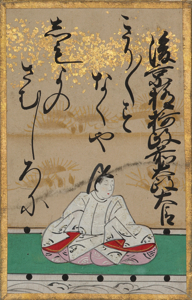 後京極摂政前太政大臣
きり〳〵す
なくや
しもよの
さむしろに